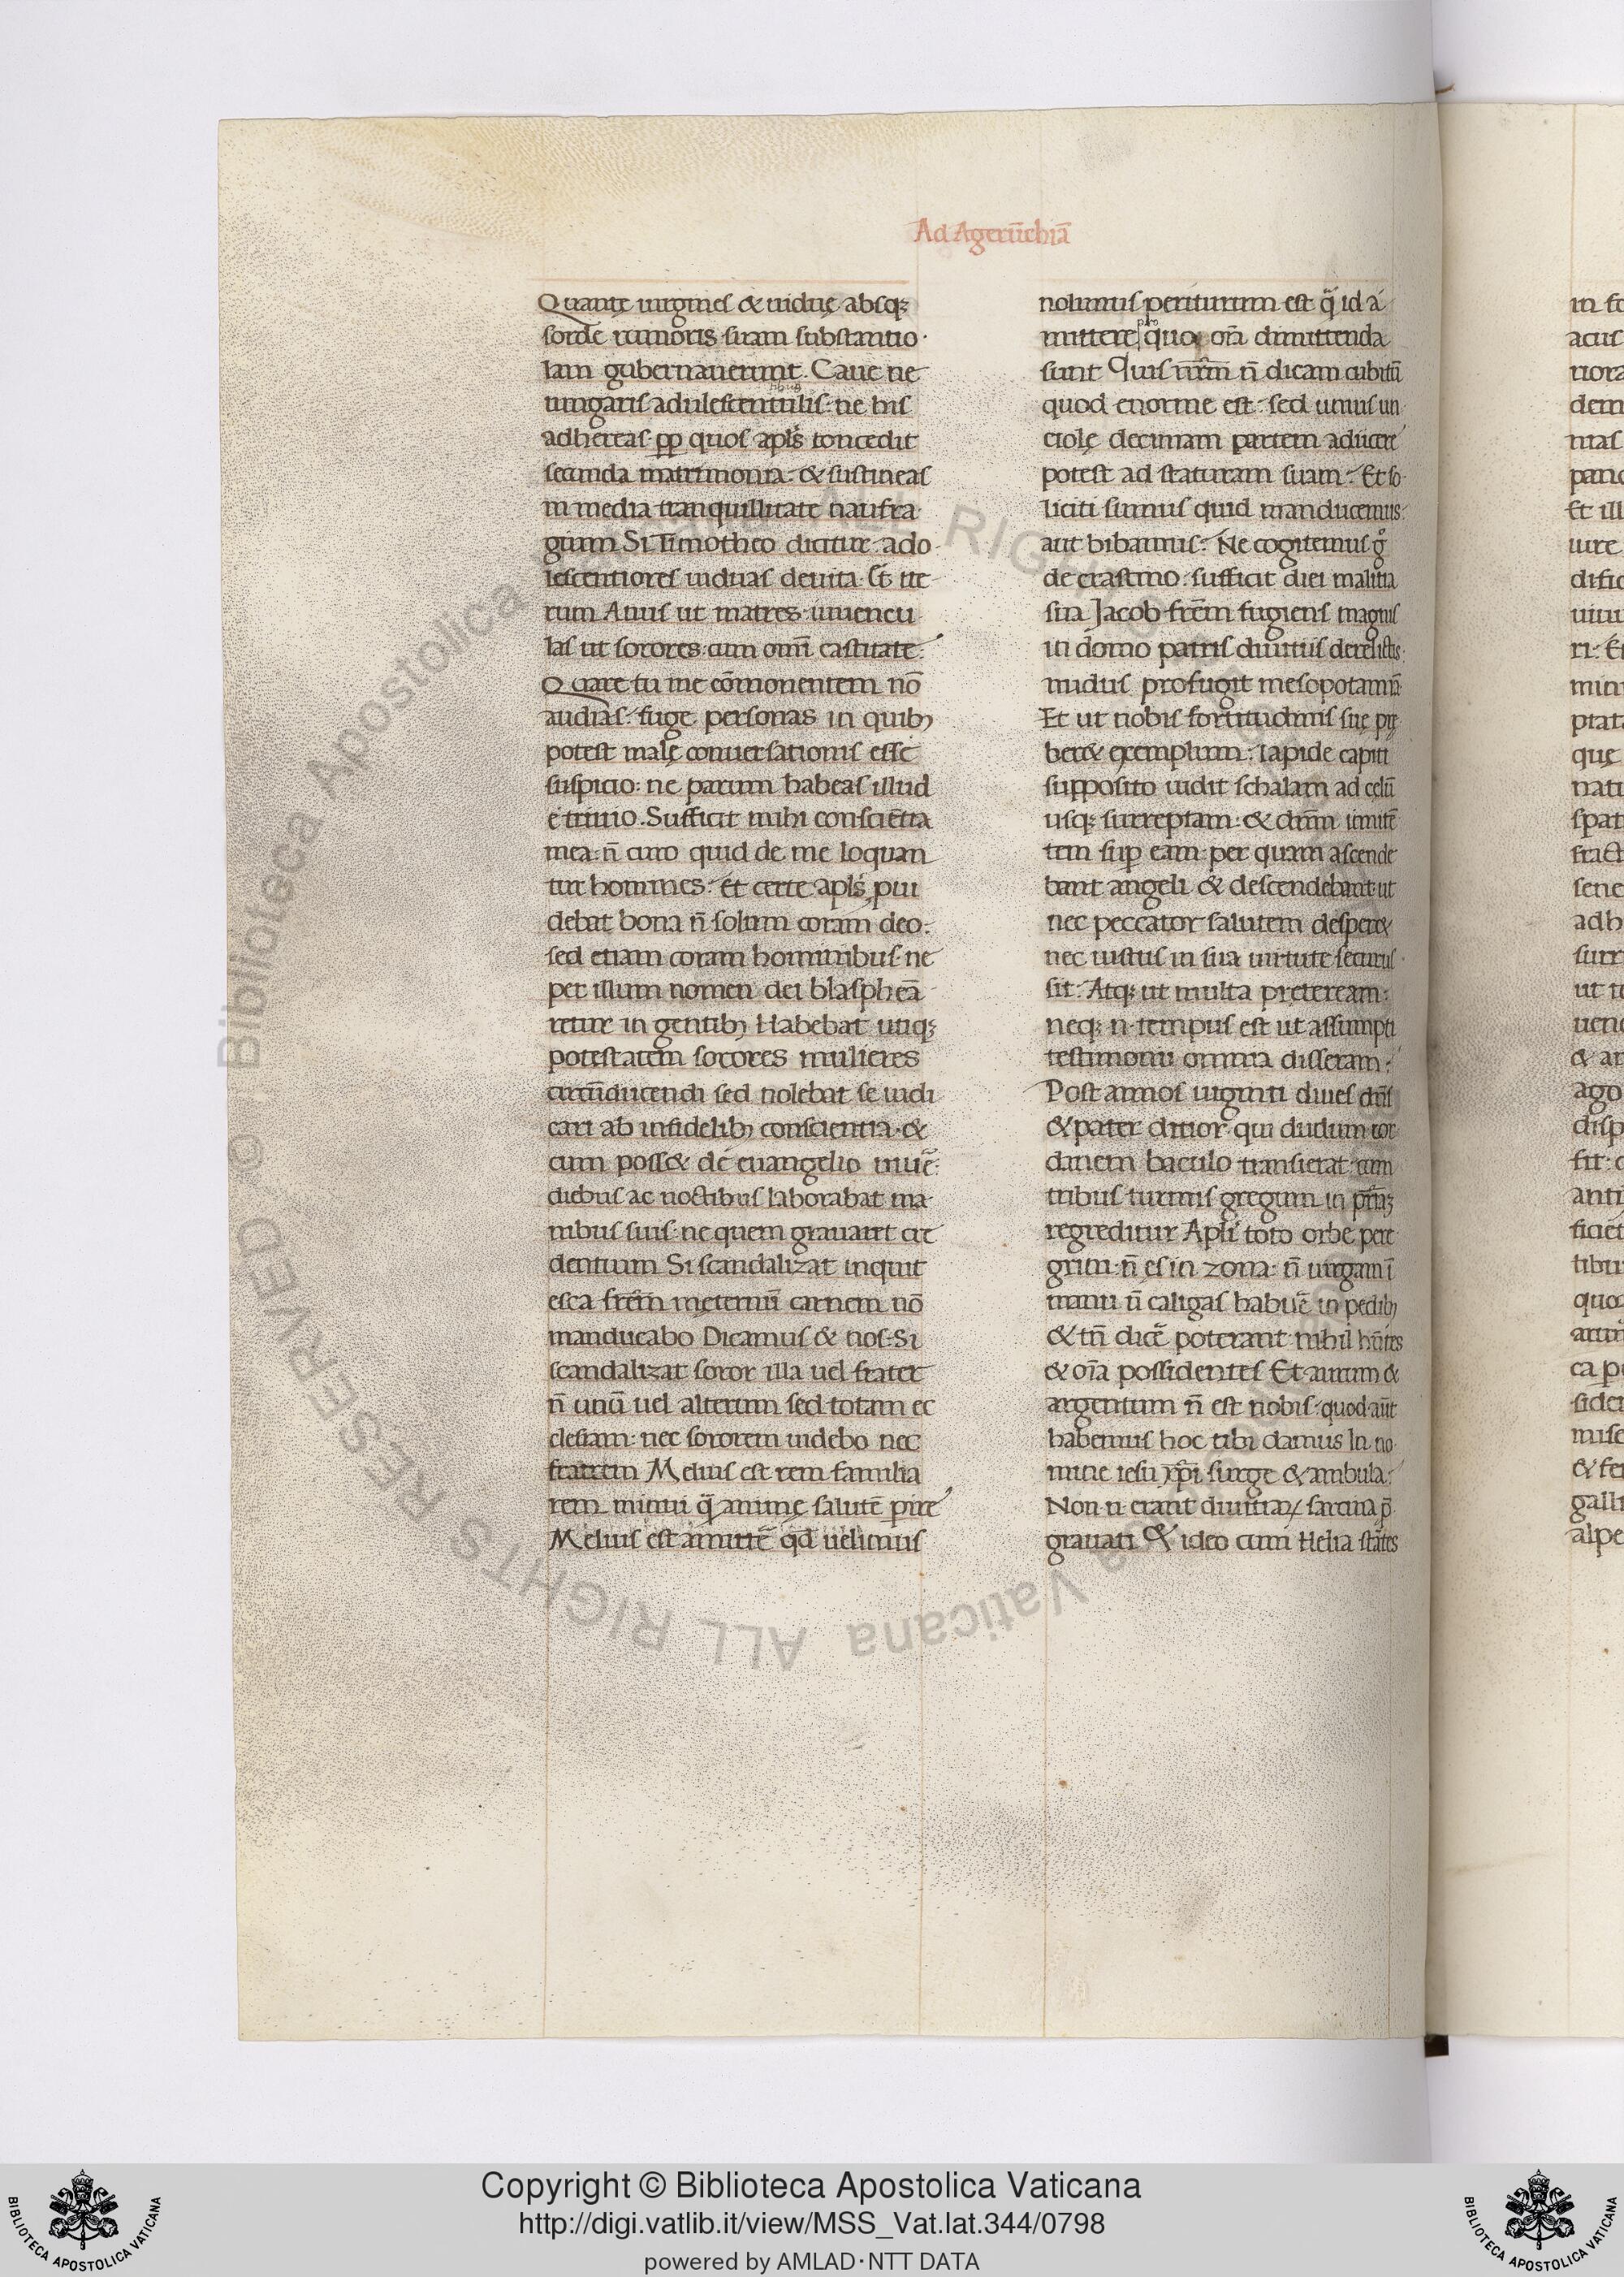 Ad Agerūchiā
Quantę uirgines & uiduę absq;
sorde rumoris suam substantio
lam gubernauerunt. Caue ne
iungaris adulescentulis. ne his
adhereas. pp quos apl̅s concedit
secunda matrimonia. & sustineas
in media tranquillitate naufra
gium Si Timotheo dicitur. ado
lescentiores uiduas deuita. &
rum Anus ut matres. iuuencu
las ut sorores. cum om̅i castitate.
Quare tu me cōmonentem nō
audias. fuge personas in quib;
potest malę conuersationis esse
suspicio: ne parum habeas illud
e triuio. Sufficit mihi consciētia
mea. n̅ curo quid de me loquan
tur homines. Et certe apl̅s, pui
debat bona n̅ solum coram deo.
sed etiam coram hominibus. ne
per illum nomen dei blasphēa
retur in gentib; Habebat utiq;
potestatem sorores mulieres
circūducendi sed nolebat se iudi
cari ab infidelib; conscientia. &
cum poss& de euangelio uiuē.
diebus ac noctibus laborabat ma
nibus suis. ne quem grauaret cre
dentium Si scandalizat inquit
esca fr̅em in ęternū carnem nō
manducabo Dicamus & nos. Si
scandalizat soror illa uel frater
n̅ unū uel alterum sed totam ec
clesiam. nec sororem uidebo nec
fratrem Melius est rem familia
rem minui q̄ animę salutē pire
Melius est amittē qd̅ uelimus
nolimus periturum est q̄ id a
mittere pro quo om̅a dimittenda
sunt Quis nr̅m n̅ dicam cubitū
quod enorme est. sed unius un
ciolę decimam partem adiicere
potest ad staturam suam. Et so
liciti sumus quid manducemus.
aut bibamus. Ne cogitemus g̊
de crastino. sufficit diei malitia
sua Jacob fr̅em fugiens magnis
in domo patris diuitiis derelictis.
nudus profugit mesopotamiā
Et ut nobis fortitudinis suę pre
ber& exemplum. lapide capiti
supposito uidit schalam ad celū
usq; surreptam. & dn̅m innitē
tem sup eam. per quam ascende
bant angeli & descendebant. ut
nec peccator salutem desper&
nec iustus in sua uirtute securus
sit. Atq; ut multa preteream.
neq; n. tempus est ut assumpti
testimonii omnia disseram.
Post annos uiginti diues dn̅s
& pater ditior. qui dudum ior
danem baculo transierat. cum
tribus turmis gregum in
regreditur Apl̅i toto orbe pere
grini. n̅ ęs in zona. n̅ uirgam ī
manu n̅ caligas habuē in pedib;
& tn̅ dicē poterant. nihil hn̅tes
& om̅a possidentes Et. aurum &
argentum n̅ est nobis. quod aūt
habemus hoc tibi damus In no
mine iesu xp̅i surge & ambula.
Non n. erant diuitiaꝝ sarcina p̄
grauati & ideo cum Helia stātes
Copyright © Biblioteca Apostolica Vaticana
http://digi.vatlib.it/view/MSS_Vat.lat.344/0798
powered by AMLAD·NTT DATA
BIBLIOTECA APOSTOLICA VATICANA
BIBLIOTECA APOSTOLICA VATICANA